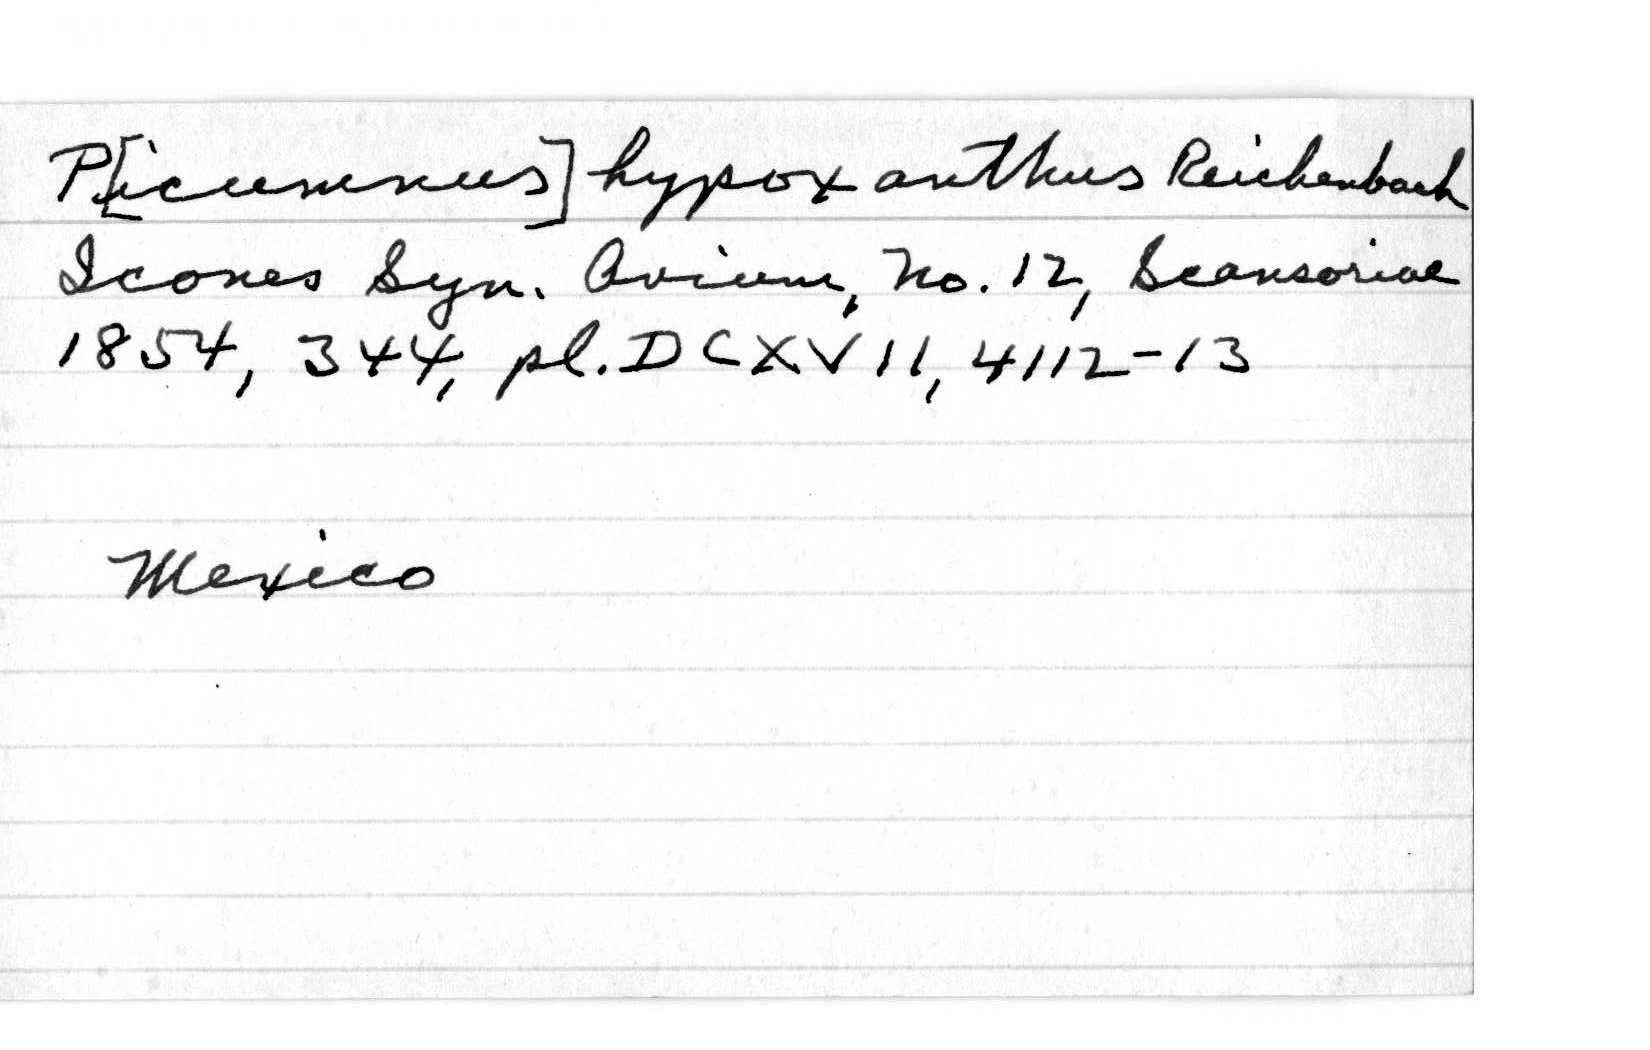 P[icumnus] hypoxanthus Reichenbach
Icones Syn. Avium, No. 12, Scansoriae
1854, 344, pl. DCXVII, 4112-13
Mexico